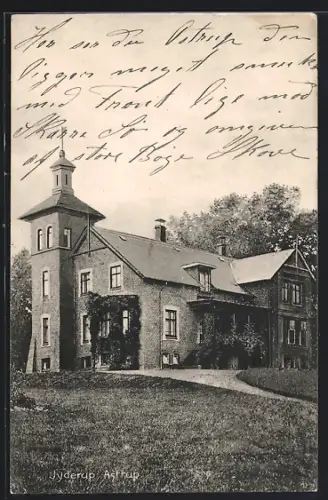 Her ser du Astrup den
ligger meget smukt
med Front lige mod
Skarre Sø og omgiven
af store Bøge Skove
Jyderup Astrup